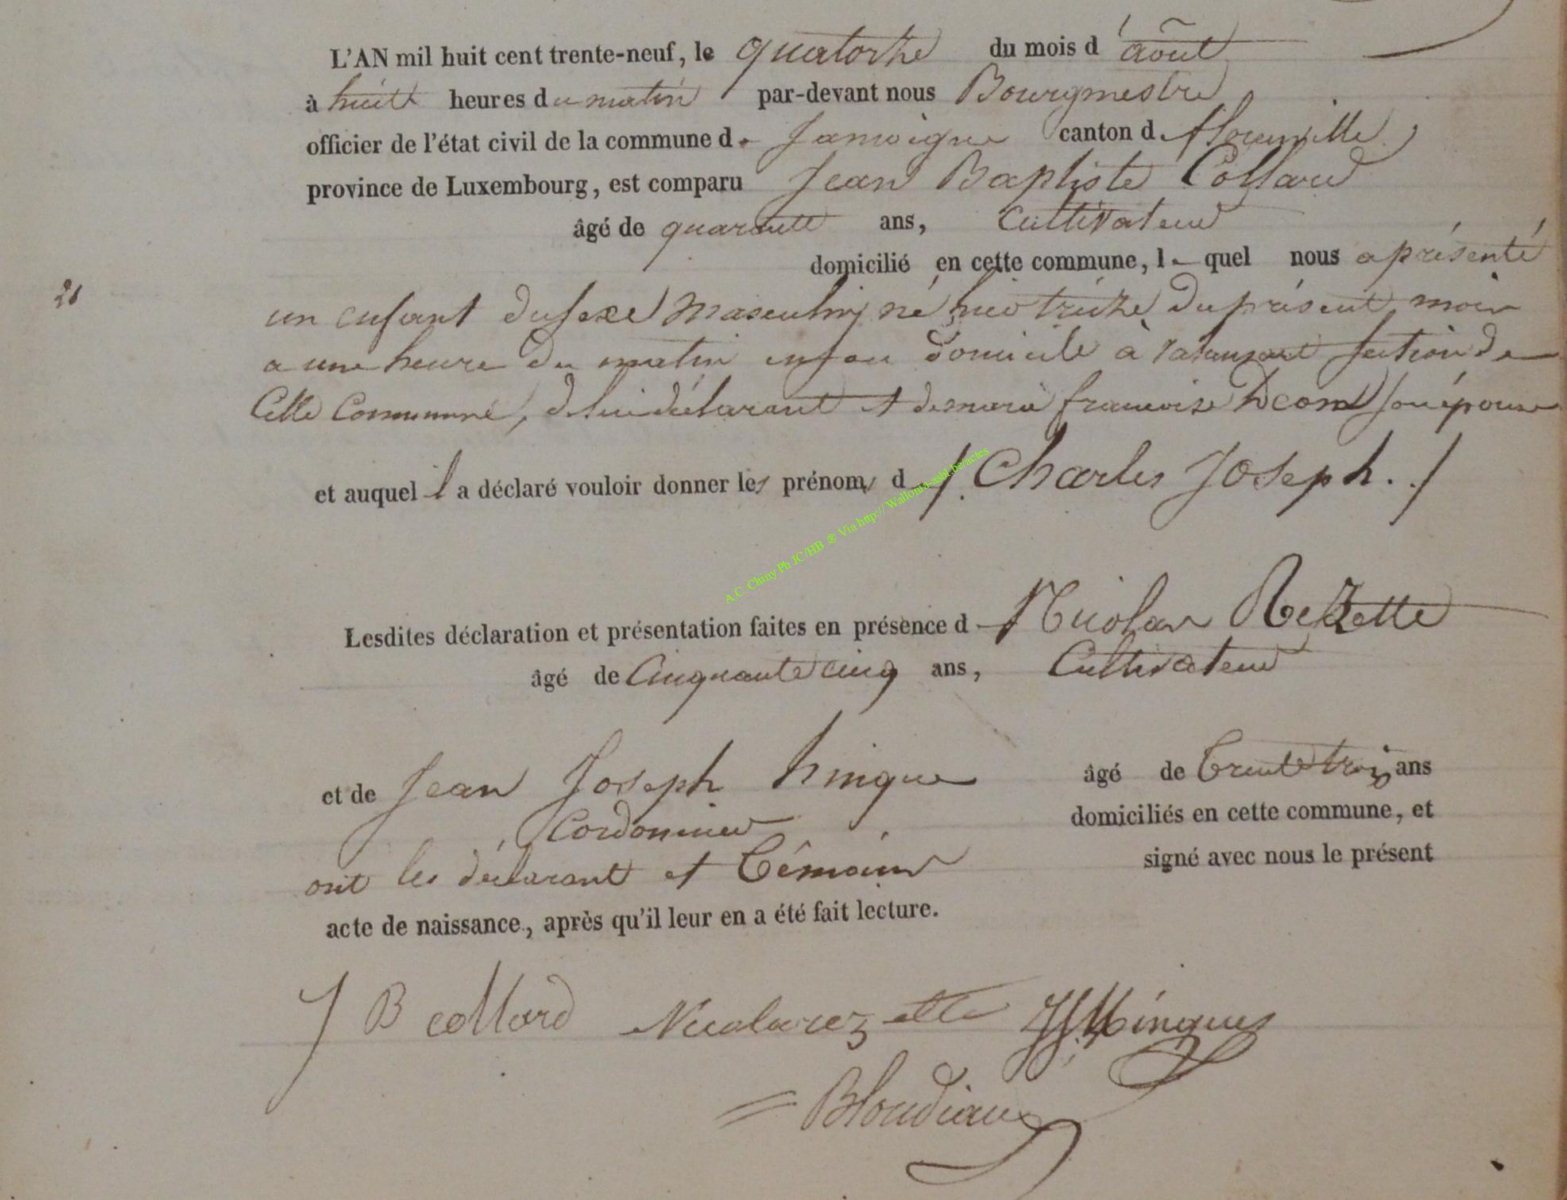 L'AN mil huit cent trente-neuf, le quatorze du mois d'août
à huit heures du matin par-devant nous Bourgmestre
officier de l'état civil de la commune de Jamoigne canton de florenville
province de Luxembourg, est comparu Jean Baptiste Collard
âgé de quarante ans, Cultivateur
domicilié en cette commune, le quel nous a présenté
21
un enfant du sexe Masculin né hier treize du présent mois
a une heure du matin en son domicile à section de
Cette Commune, de lui déclarant et de marie francoise Deom son épouse
et auquel il a déclaré vouloir donner les prénoms d Charles Joseph.
A.C. Chiny Ph JC/HB ® Via http://
Lesdites déclaration et présentation faites en présence d Nicolas Rezette
âgé de Cinquante cinq ans, Cultivateur
et de Jean Joseph hingue âgé de trente trois ans
Cordonnier domiciliés en cette commune, et
ont les déclarant et témoins signé avec nous le présent
acte de naissance, après qu'il leur en a été fait lecture.
J B collard Nicolas rezette JJ Hingues
Blondiaux